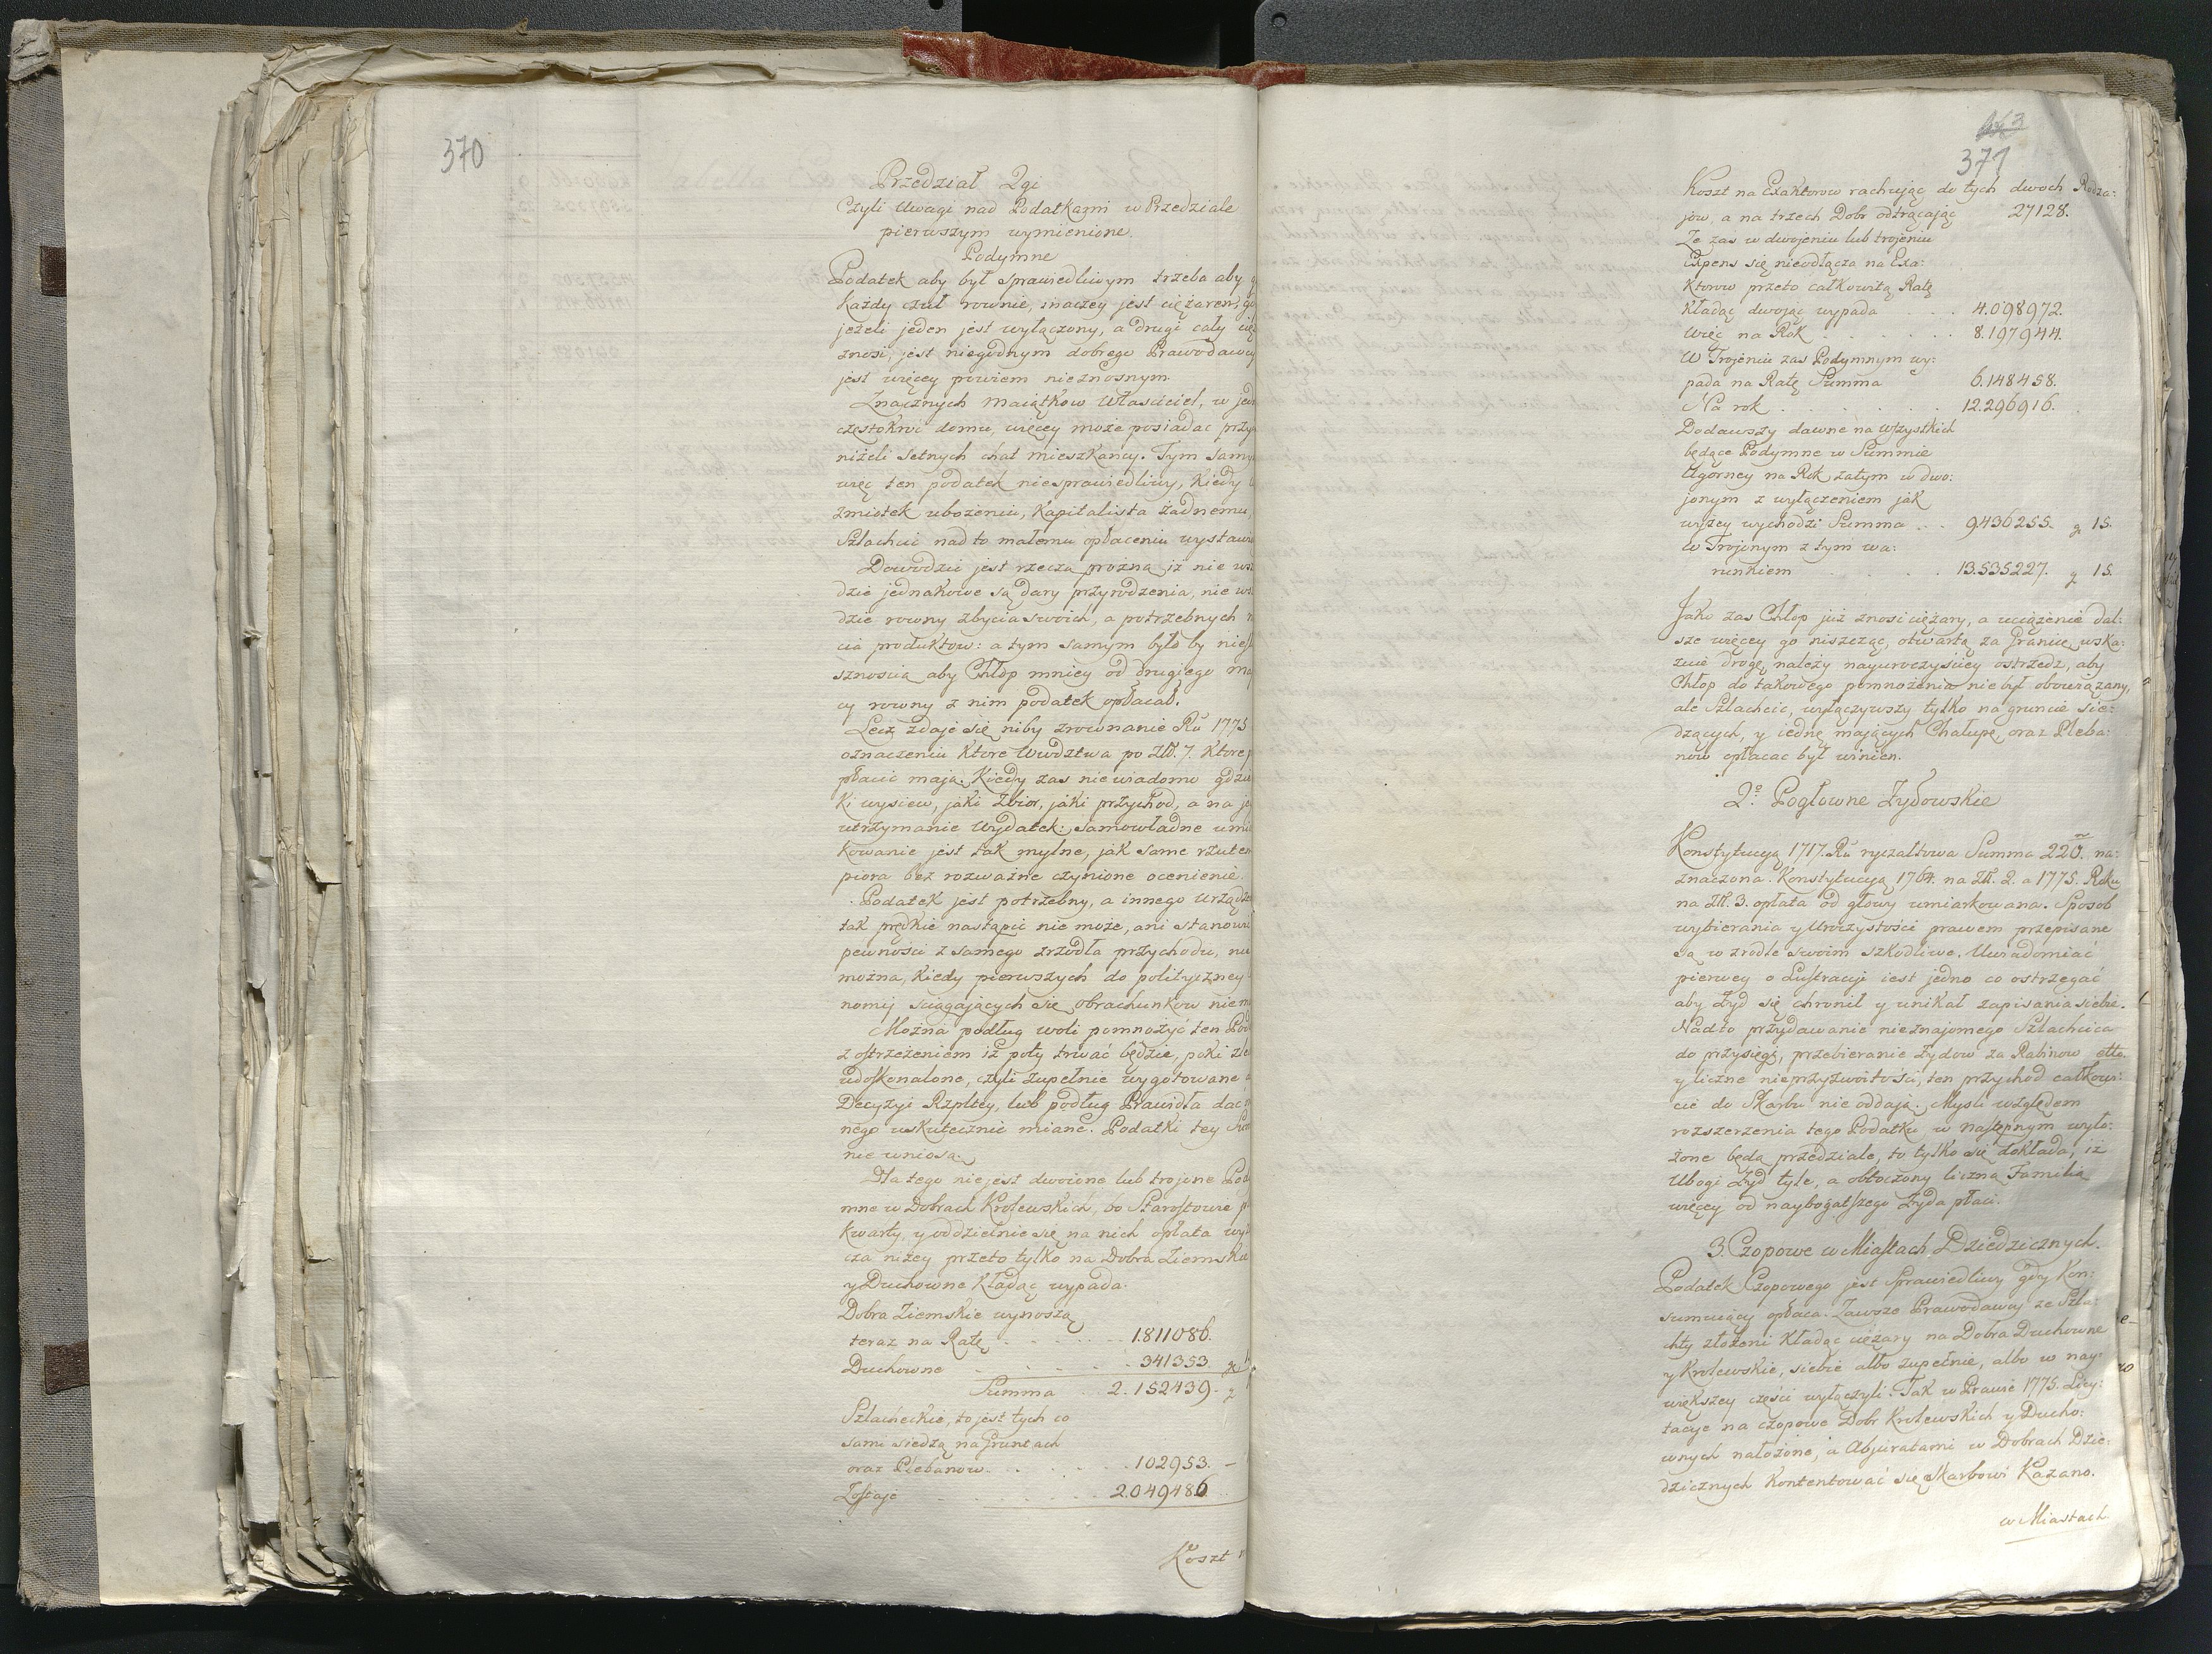 370
Przedział 2gi
Czyli Uwagi nad Podatkami w Przedziale
pierwszym wymienione.
Podymne
Podatek aby był sprawiedliwym trzeba aby g
każdy czuł rownie, inaczey jest ciężarem, g
jeżeli jeden jest wyłączony, a drugi cały cię
znosi, jest niegodnym dobrego Prawodawcy
jest więcey powiem nieznosnym.
Znacznych maiątkow Własciciel, w jed
częstokroć domu, więcey może posiadać przy
niżeli setnych chat mieszkańcy. Tym samy
więc ten podatek niesprawiedliwy, kiedy
zmiotek ubożeniu, Kapitalista żadnemu,
Szlachcic nad to małemu opłaceniu wystawi
Dowodzić jest rzeczą prożną iż nie ws
dzie jednakowe są dary przyrodzenia, nie ws
dzie rowny zbycia swoich, a potrzebnych n
cia produktow: a tym samym było by nies
sznością aby Chłop mniey od drugiego ma
cy rowny z nim podatek opłacał.
Lecz zdaje się niby zrownanie Ru 1775
oznaczeniu ktore Wwdztwa po Zł. 7. ktore
płacić mają. Kiedy zas nie wiadomo gdzie
ki wysiew, jaki zbior, jaki przychod, a na j
utrzymanie wydatek: samowładne umi
kowanie jest tak mylne, jak same rzuten
piora bez rozważne czynione ocenienie.
Podatek jest potrzebny, a innego urządze
tak prędkie nastąpić nie może, ani stanowi
pewności z samego zrzodła przychodu, nie
można, kiedy pierwszych do polityczney
nomij sciągających się obrachunkow nie m
Można podług woli pomnożyć ten Pod
z ostrzeżeniem iż poty trwać będzie, poki zle
udoskonalone, czyli zupełnie wygotowane
Decyzyi Rzpltey, lub podług Prawidła dac
nego uskutecznić miane. Podatki tey Sum
nie wniosą.
Dla tego nie jest dwoione lub trojone Pody
mne w Dobrach Krolewskich, bo Starostowie p
kwarty, y oddzielnie się na nich opłata wy
cza niżey przeto tylko na Dobra Ziemskie
y Duchowne kładąc wypada.
Dobra Ziemskie wynoszą
teraz na Ratę . . . 1811086.
Duchowne . . . 341353. g
Summa . 2.152439. g
Szlacheckie, to jest tych co
sami siedzą na Gruntach
oraz Plebanow . . . 102953. -
Zostaje . . . 2.049486
Koszt
663
371
Koszt na Exaktorow rachując do tych dwoch Rodza:
jow, a na trzech Dobr odtrącając 27128.
Ze zas w dwojeniu lub trojeniu
Expens się nieodłącza na Exa:
ktorow przeto całkowitą Ratę
Kładąc dwojąc wypada . . . 4.098972.
Więc na Rok . . . 8.197944.
W Trojeniu zas Podymnym wy:
pada na Ratę Summa 6.148458.
Na rok . . . 12.296916.
Dodawszy dawne na wszystkich
będące Podymne w Summie
Ugorney na Rok zatym w dwo:
jonym z wyłączeniem jak
wyżey wychodzi Summa . . 9.436255. g 15.
w Trojonym z tym wa:
runkiem . . . 13.535227. g 15.
Jako zas Chłop już znosi ciężary, a uciążenie dal:
sze więcey go niszcząc, otwartą za Granicę wska:
zuie drogę, należy nayuroczyściey ostrzedz, aby
Chłop do takowego pomnożenia nie był obowiązany,
ale Szlachcic, wyłączywszy tylko na gruncie sie:
dzących, y iednę mających Chałupę, oraz Pleba:
now opłacac był winien.
2° Pogłowne Zydowskie
Konstytucyą 1717. Ru ryczałtowa Summa 220. na:
znaczona. Konstytucyą 1764. na Zł. 2. a 1775. Roku
na Zł. 3. opłata od głowy umiarkowana. Sposob
wybierania y Uroczystości prawem przepisane
są w zrodle swoim szkodliwe. Uwiadomiać
pierwey o Lustracyi iest jedno co ostrzegać
aby Zyd się chronił y unikał zapisania siebie.
Nadto przydawanie nieznajomego Szlachcica
do przysięgi, przebieranie Zydow za Rabinow etto.
y liczne nieprzyzwoitości, ten przychod całkowi:
cie do Skarbu nie oddają. Mysli względem
rozszerzenia tego Podatku w następnym wyło:
żone będą przedziale, tu tylko się dokłada, iż
Ubogi Zyd tyle, a obtoczony liczną Familią
więcey od naybogatszego Zyda płaci.
3. Czopowe w Miastach Dziedzicznych.
Podatek Czopowego jest Sprawiedliwy gdy Kon:
sumuiący opłaca. Zawsze Prawodawcy ze Szla:
chty złożeni kładąc ciężary na Dobra Duchowne
y Krolewskie, siebie albo zupełnie, albo w nay:
większey części wyłączyli. Tak w Prawie 1775. Licy:
tacye na czopowe Dobr Krolewskich y Ducho:
wnych nałożone, a Abjuratami w Dobrach Dzie:
dzicznych kontentować się Skarbowi Kazano.
w Miastach.